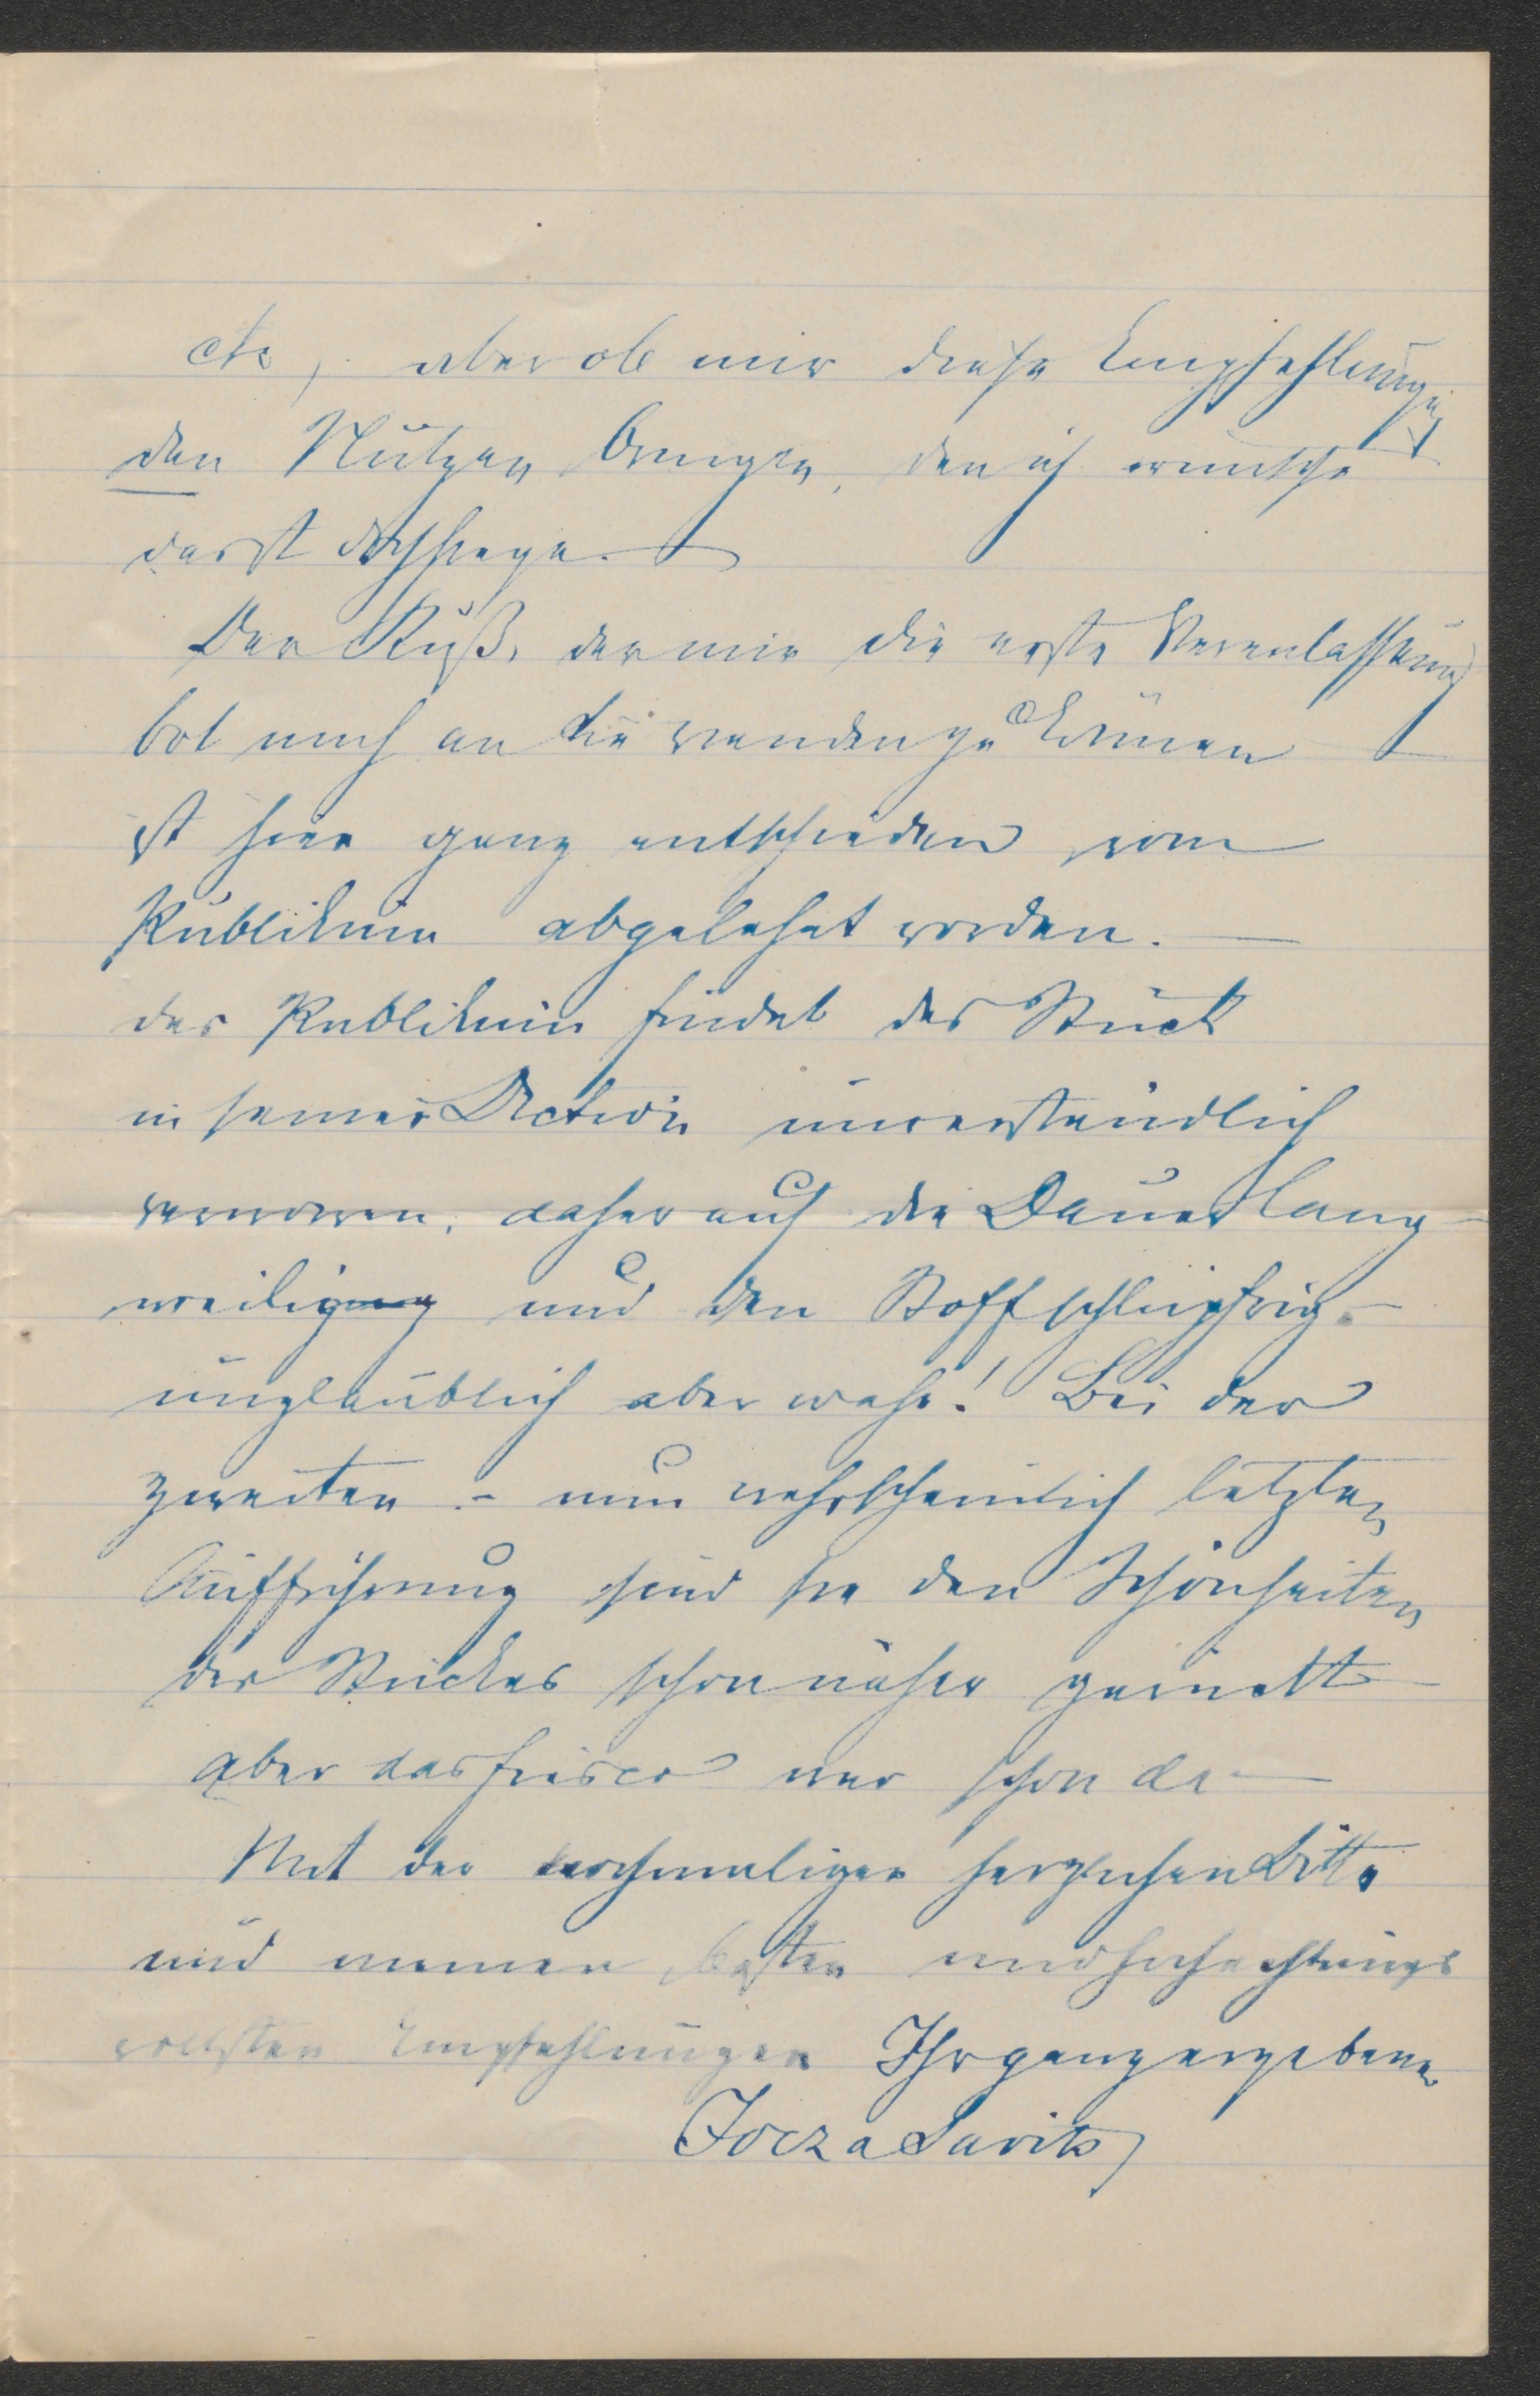 etc, aber ob mir diese Empfehlungen
den Nutzen bringen, den ich wünsche
das ist d. Frage. —
Der Kuß, der mir die erste Veranlassung
bot mich an Sie wenden zu können —
ist hier ganz entschieden vom
Publikum abgelehnt worden. —
das Publikum findet das Stück
in seiner Action unverständlich
verworren, daher auf die Dauer lang-
weilig und den Stoff schlüpfrig. —
unglaublich aber wahr! Bei der
zweiten – nun wahrscheinlich letzten
Aufführung sind sie den Schönheiten
des Stückes schon näher gerückt —
aber das fiasco war schon da —
Mit der nochmaligen herzlichen Bitte
und meinen besten und hochachtungs
vollsten Empfehlungen Ihr ganz ergebener
Jocza Savits